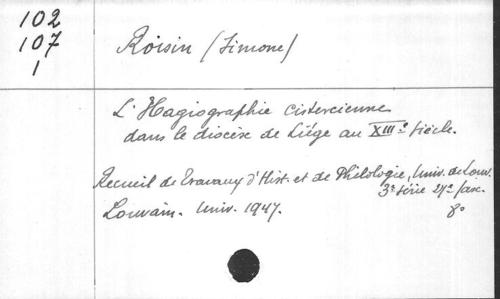 102
107
1
Roisin (Simone)
L'Hagiographie cistercienne
dans le diocèse de Liége au XIIIe siècle.
Recueil de Travaux d'Hist. et de Philologie, Univ. de Louv.
3e série 27e fasc.
Louvain. Univ. 1947. 8o